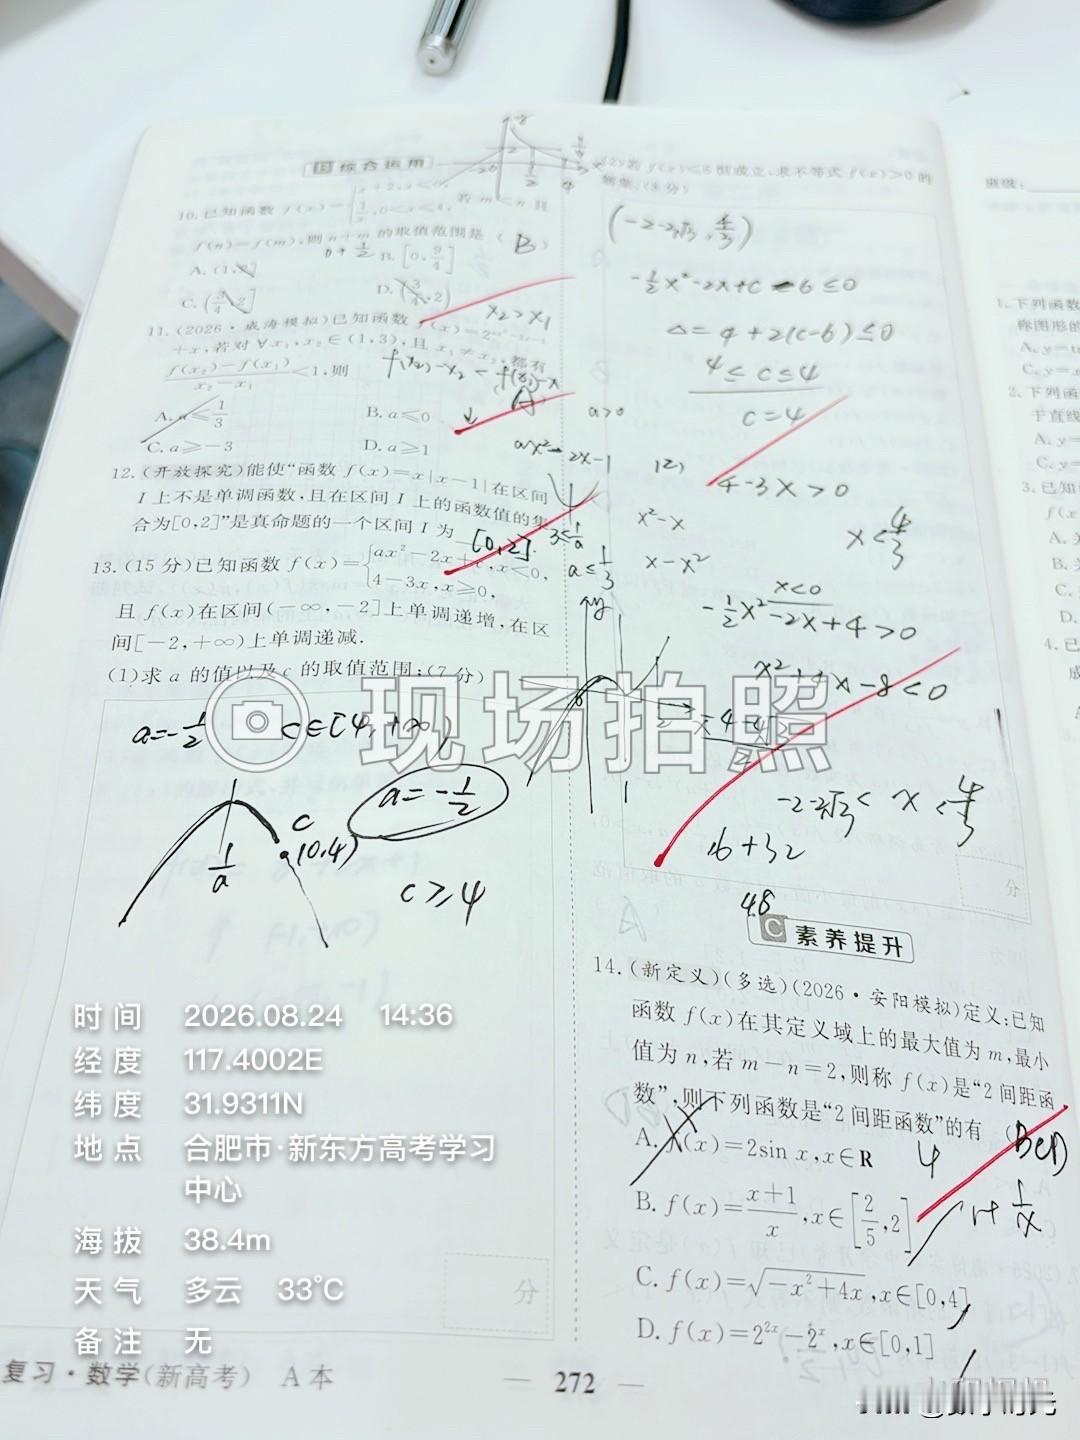 B 综合运用
10.已知函数 f(x)=
x+2,x≤0,
1/x,0<x<4, 若 m<n 且
f(n)=f(m),则 n+m 的取值范围是( B )
A.(1,2] B.[0,9/4]
C.(3/4,2] D.(3/4,2)
x₂>x₁
11.(2026·威海模拟)已知函数
+x,若对∀x₁,x₂∈(1,3),且 x₁≠x₂,都有
f(x₂)-f(x₁)/x₂-x₁<1,则
A
A.a≤1/3 B.a≤0
C.a≥-3 D.a≥1
a>0
ax²-2x-1
12.(开放探究)能使“函数 f(x)=x|x-1|在区间
I 上不是单调函数,且在区间 I 上的函数值的集
合为[0,2]”是真命题的一个区间 I 为 [0,2].
3≤1/a
a≤1/3
x²-x
x-x²
13.(15分)已知函数 f(x)=
ax²-2x+c,x<0,
4-3x,x≥0,
且 f(x)在区间(-∞,-2]上单调递增,在区
间[-2,+∞)上单调递减.
(1)求 a 的值以及 c 的取值范围;(7分)
a=-1/2 c∈[4,+∞)
a=-1/2
C
(0,4)
1/a
c≥4
(2)若 f(x)≤6 恒成立,求不等式 f(x)>0 的
解集.(8分)
(-2-2√3,4/3)
-1/2x²-2x+c-6≤0
Δ=4+2(c-6)≤0
4≤c≤4
c=4
(2)
4-3x>0
x<4/3
x<0
-1/2x²-2x+4>0
x²+4x-8<0
-2-2√3<x<4/3
16+32
48
分
C 素养提升
14.(新定义)(多选)(2026·安阳模拟)定义:已知
函数 f(x)在其定义域上的最大值为 m,最小
值为 n,若 m-n=2,则称 f(x)是“2间距函
数”,则下列函数是“2间距函数”的有 ( BCD
A.f(x)=2sin x,x∈R 4
B.f(x)=x+1/x,x∈[2/5,2] 1+1/x
C.f(x)=√-x²+4x,x∈[0,4]
D.f(x)=2²ˣ-2ˣ,x∈[0,1]
分
复习·数学(新高考) A本
— 272 —
班级:
1.下列函数
称图形的
A.y=
C.y=
2.下列函
于直线
A.y=
C.y=
3.已知
f(x
A.
B.
C.
D.
4.已
成
现场拍照
时间 2026.08.24 14:36
经度 117.4002E
纬度 31.9311N
地点 合肥市·新东方高考学习
中心
海拔 38.4m
天气 多云 33℃
备注 无